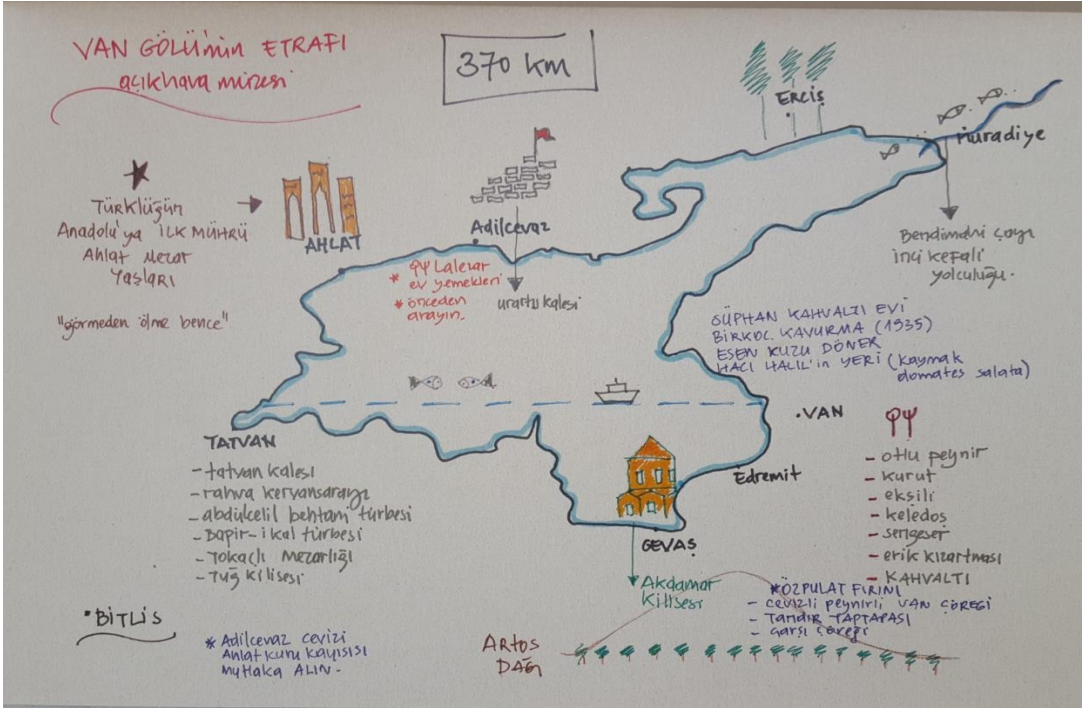 VAN GÖLÜ'nün ETRAFI
açıkhava müzesi
370 km
ERCİŞ
Muradiye
Türklüğün
Anadolu'ya İLK MÜHRÜ
Ahlat Mezar
Taşları
"görmeden ölme bence"
AHLAT
Adilcevaz
* Lalezar
ev yemekleri
* önceden
arayın.
urartu kalesi
Bendimahi çayı
inci kefali
yolculuğu.
SÜPHAN KAHVALTI EVİ
BİRKOÇ KAVURMA (1935)
ESEN KUZU DÖNER
HACI HALİL'in YERİ (kaymak
domates salata)
TATVAN
- tatvan kalesi
- rahva kervansarayı
- abdülcelil behtani türbesi
- Bapir-ikal türbesi
- Tokaçlı Mezarlığı
- Tuğ kilisesi
.VAN
Edremit
- otlu peynir
- kurut
- ekşili
- keledoş
- sengeser
- erik kızartması
- KAHVALTI
GEVAŞ
Akdamar
Kilisesi
* ÖZPULAT FIRINI
- cevizli peynirli VAN ÇÖREĞİ
- TANDIR TAPTAPASI
- çarşı çöreği
•BİTLİS
* Adilcevaz cevizi
Ahlat kuru kayısısı
mutlaka ALIN-
ARTOS
DAĞI